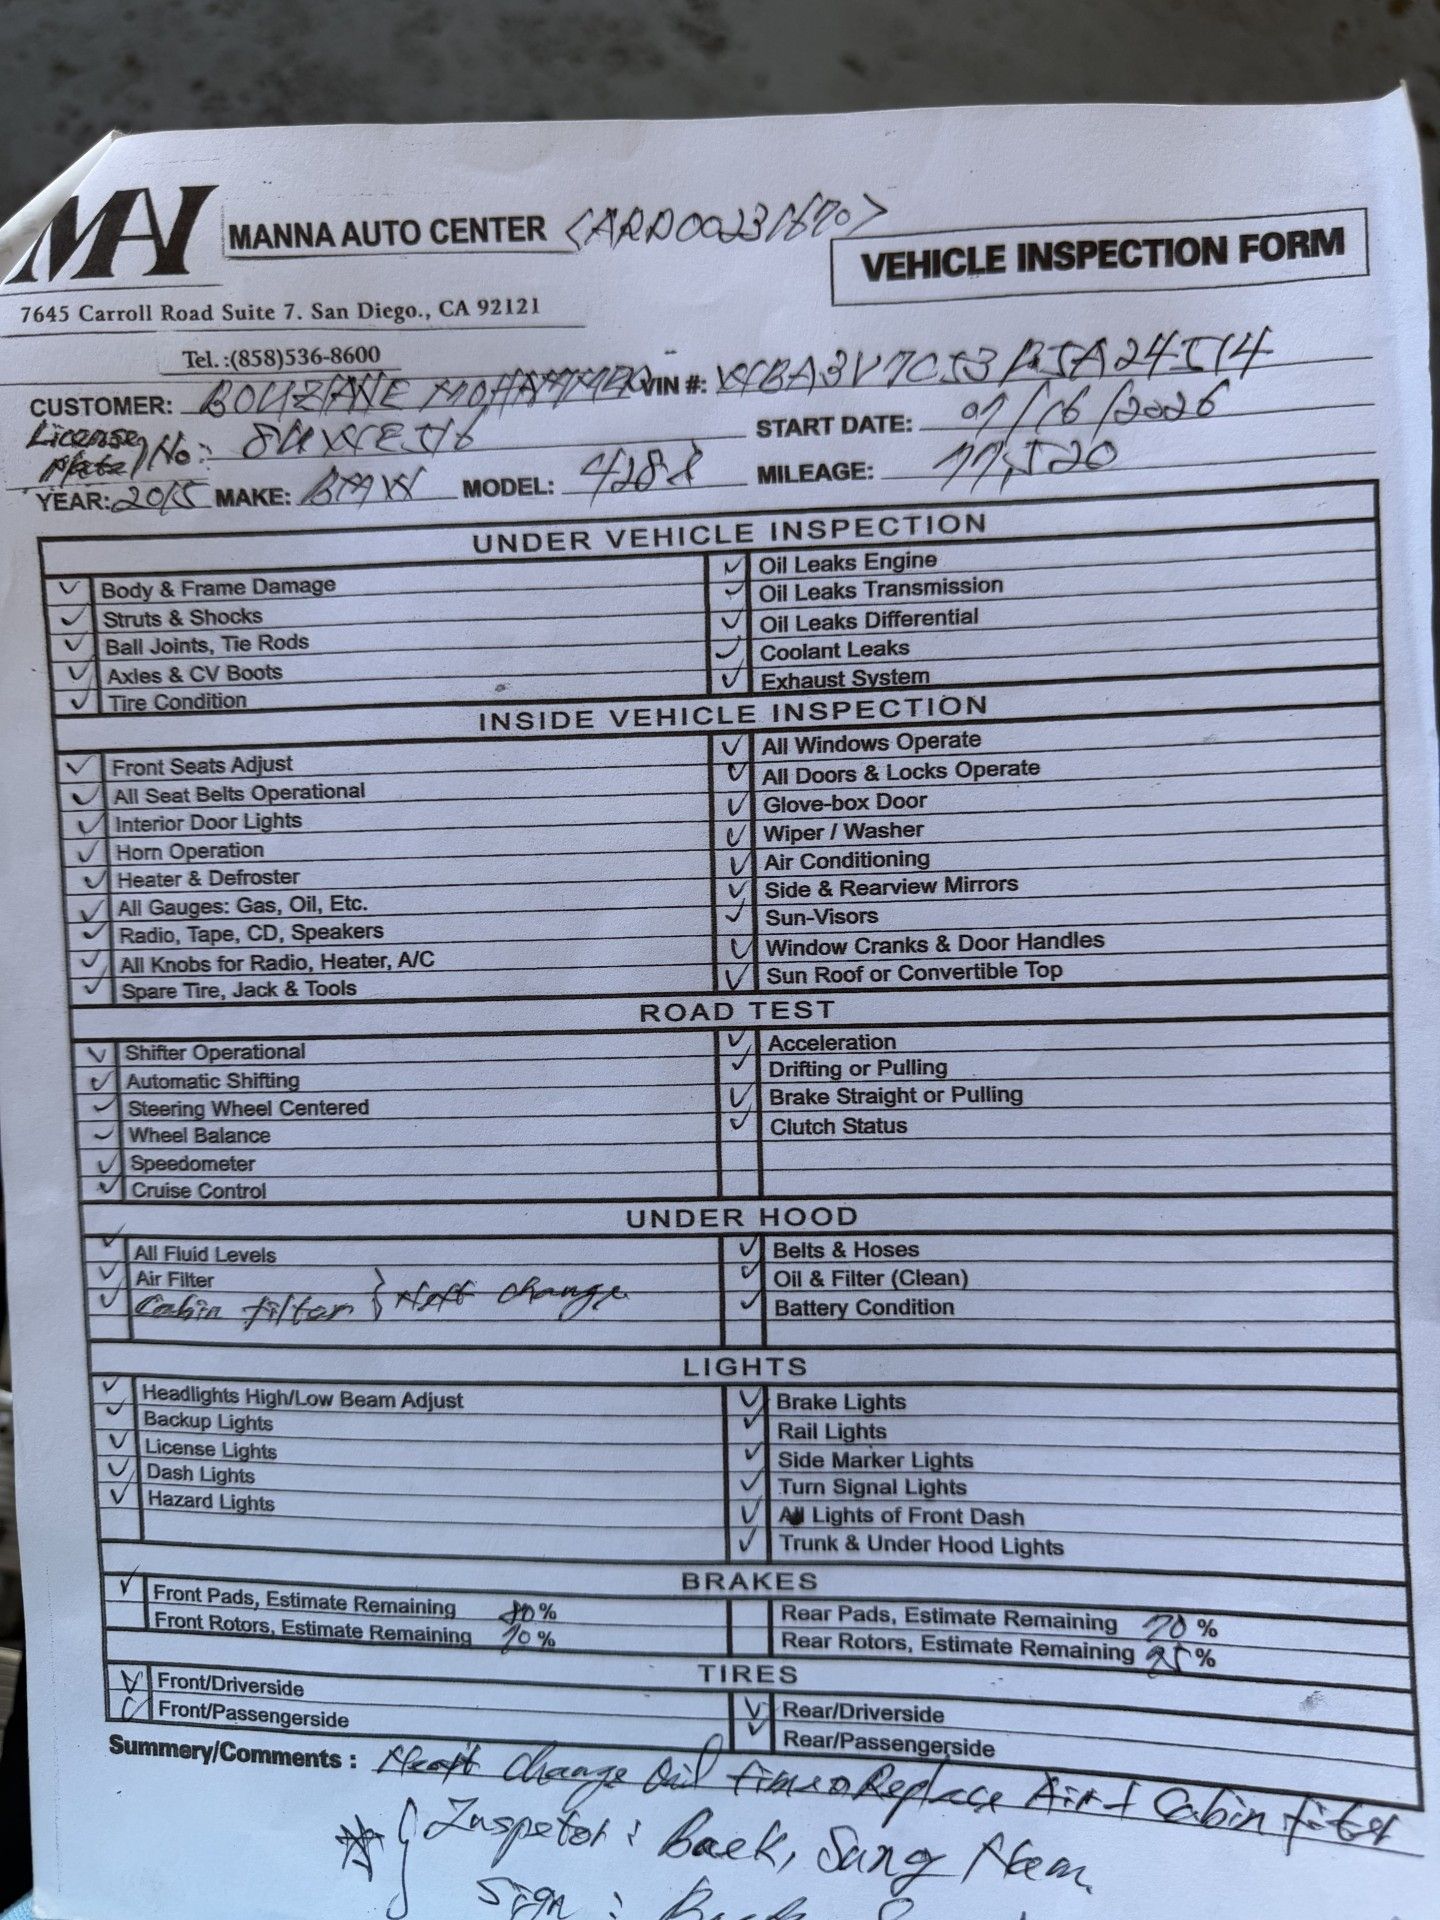 MAI MANNA AUTO CENTER <ARD00231670>
VEHICLE INSPECTION FORM
7645 Carroll Road Suite 7. San Diego., CA 92121
Tel.:(858)536-8600
CUSTOMER: BOUZIANE MOHAMMED VIN #:
License Plate/No:
START DATE: 07/16/2026
YEAR: 2015 MAKE: BMW MODEL: 428i MILEAGE: 77,520
UNDER VEHICLE INSPECTION
✓ Body & Frame Damage ✓ Oil Leaks Engine
✓ Struts & Shocks ✓ Oil Leaks Transmission
✓ Ball Joints, Tie Rods ✓ Oil Leaks Differential
✓ Axles & CV Boots ✓ Coolant Leaks
✓ Tire Condition ✓ Exhaust System
INSIDE VEHICLE INSPECTION
✓ Front Seats Adjust ✓ All Windows Operate
✓ All Seat Belts Operational ✓ All Doors & Locks Operate
✓ Interior Door Lights ✓ Glove-box Door
✓ Horn Operation ✓ Wiper / Washer
✓ Heater & Defroster ✓ Air Conditioning
✓ All Gauges: Gas, Oil, Etc. ✓ Side & Rearview Mirrors
✓ Radio, Tape, CD, Speakers ✓ Sun-Visors
✓ All Knobs for Radio, Heater, A/C ✓ Window Cranks & Door Handles
✓ Spare Tire, Jack & Tools ✓ Sun Roof or Convertible Top
ROAD TEST
✓ Shifter Operational ✓ Acceleration
✓ Automatic Shifting ✓ Drifting or Pulling
✓ Steering Wheel Centered ✓ Brake Straight or Pulling
✓ Wheel Balance ✓ Clutch Status
✓ Speedometer
✓ Cruise Control
UNDER HOOD
✓ All Fluid Levels ✓ Belts & Hoses
✓ Air Filter ✓ Oil & Filter (Clean)
✓ Cabin filter } Next change ✓ Battery Condition
LIGHTS
✓ Headlights High/Low Beam Adjust ✓ Brake Lights
✓ Backup Lights ✓ Rail Lights
✓ License Lights ✓ Side Marker Lights
✓ Dash Lights ✓ Turn Signal Lights
✓ Hazard Lights ✓ All Lights of Front Dash
✓ Trunk & Under Hood Lights
BRAKES
✓ Front Pads, Estimate Remaining % Rear Pads, Estimate Remaining 70 %
Front Rotors, Estimate Remaining 70 % Rear Rotors, Estimate Remaining %
TIRES
✓ Front/Driverside ✓ Rear/Driverside
✓ Front/Passengerside ✓ Rear/Passengerside
Summery/Comments : Next Change Oil time Replace Air + Cabin filter
Inspetor : Baek, Sung Nam
Sign :